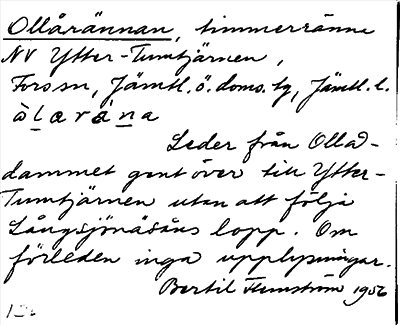 Ollårännan, timmerränna
NV Ytter-Tumtjärnen,
Fors sn, Jämtl. ö. doms. tg, Jämtl. l.
Leder från Ollå-
dammet gent över till Ytter-
Tumtjärnen utan att följa
Långsjönåsåns lopp. Om
förleden inga upplysningar.
Bertil Flemström 1956